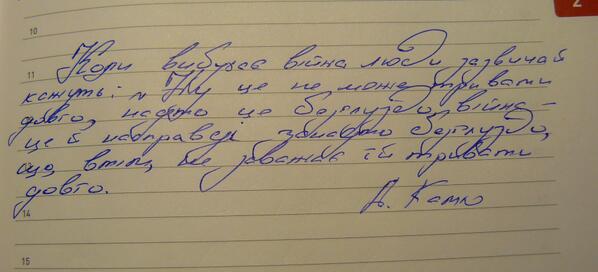 2
10
11
Коли вибухає війна люди зазвичай
кажуть: „Ну це не може тривати
довго, надто це безглуздо, війна –
це й насправді занадто безглуздо,
що, втім, не заважає їй тривати
довго.
А. Камю
14
15